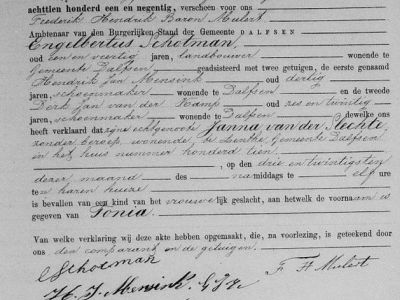 achttien honderd een en negentig, verscheen voor ons
Frederik Hendrik Baron Mulert
Ambtenaar van den Burgerlijken Stand der Gemeente DALFSEN
Engelbertus Schoeman,
oud een en veertig jaren, landbouwer wonende te
Gemeente Dalfsen geadsisteerd met twee getuigen, de eerste genaamd
Hendrik Jan Mensink oud dertig
jaren, schoenmaker wonende te Dalfsen en de tweede
Derk Jan van der Kamp oud zes en twintig
jaren, schoenmaker wonende te Dalfsen dewelke ons
heeft verklaard dat zijne echtgenoote Janna van der Slechte,
zonder beroep, wonende te Lenthe Gemeente Dalfsen
in het huis nummer honderd tien
, op den drie en twintigsten
dezer maand des namiddags te elf ure
te haren huize
is bevallen van een kind van het vrouwelijk geslacht, aan hetwelk de voornaam is
gegeven van Tonia.
Van welke verklaring wij deze akte hebben opgemaakt, die, na voorlezing, is geteekend door
ons den comparant en de getuigen.
Schoeman
H. J. Mensink F. H Mulert